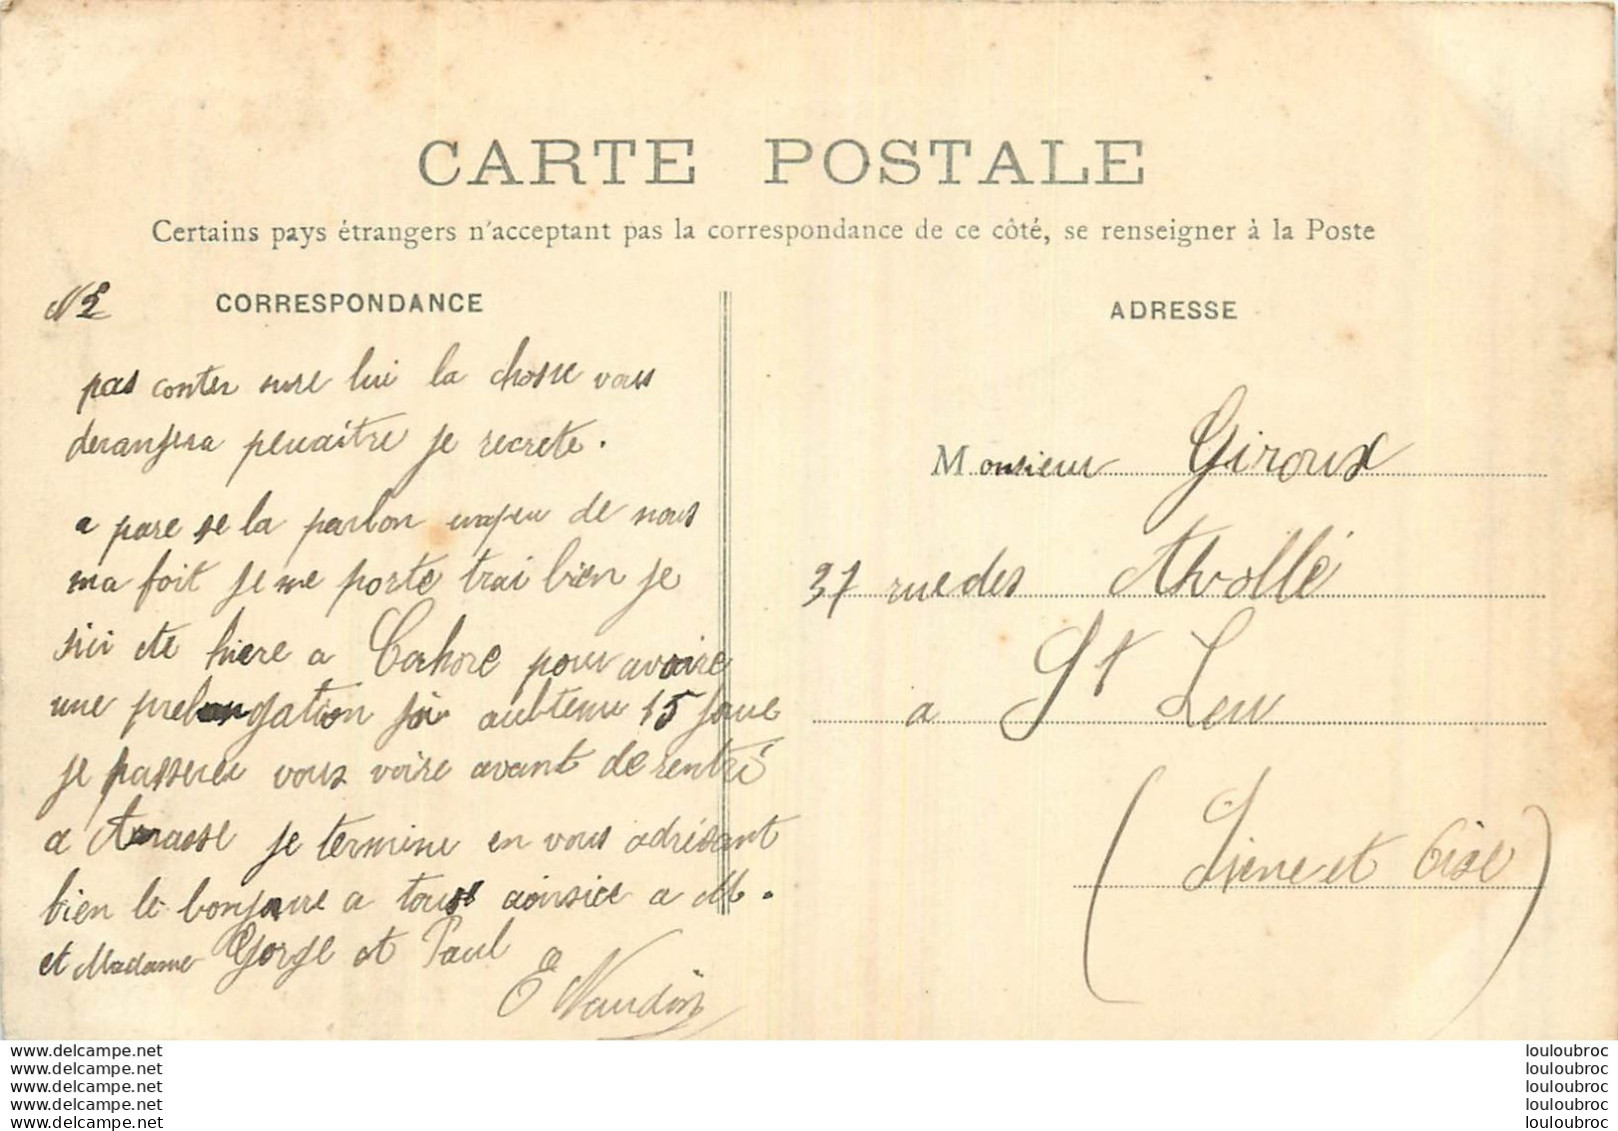 CARTE POSTALE
Certains pays étrangers n'acceptant pas la correspondance de ce côté, se renseigner à la Poste
N 2 CORRESPONDANCE
pas conter sure lui la chosse vous
deranjera peuaitre je recrete.
a pare se la parlon unpeu de nous
ma foit je me porte trai bien je
sui ete hiere a Cahore pour avoire
une prelongation j'ai aubtenu 15 joue
je passerer vous voire avant de rentré
a je termine en vous adrésant
bien le bonjoure a tous ainsice a M.
et Madame Gorge et Paul
E Naudin
ADRESSE
Monsieur Giroux
37 rue des
a St Leu
(Siene et Oise)
www.delcampe.net
www.delcampe.net
www.delcampe.net
www.delcampe.net
www.delcampe.net
louloubroc
louloubroc
louloubroc
louloubroc
louloubroc